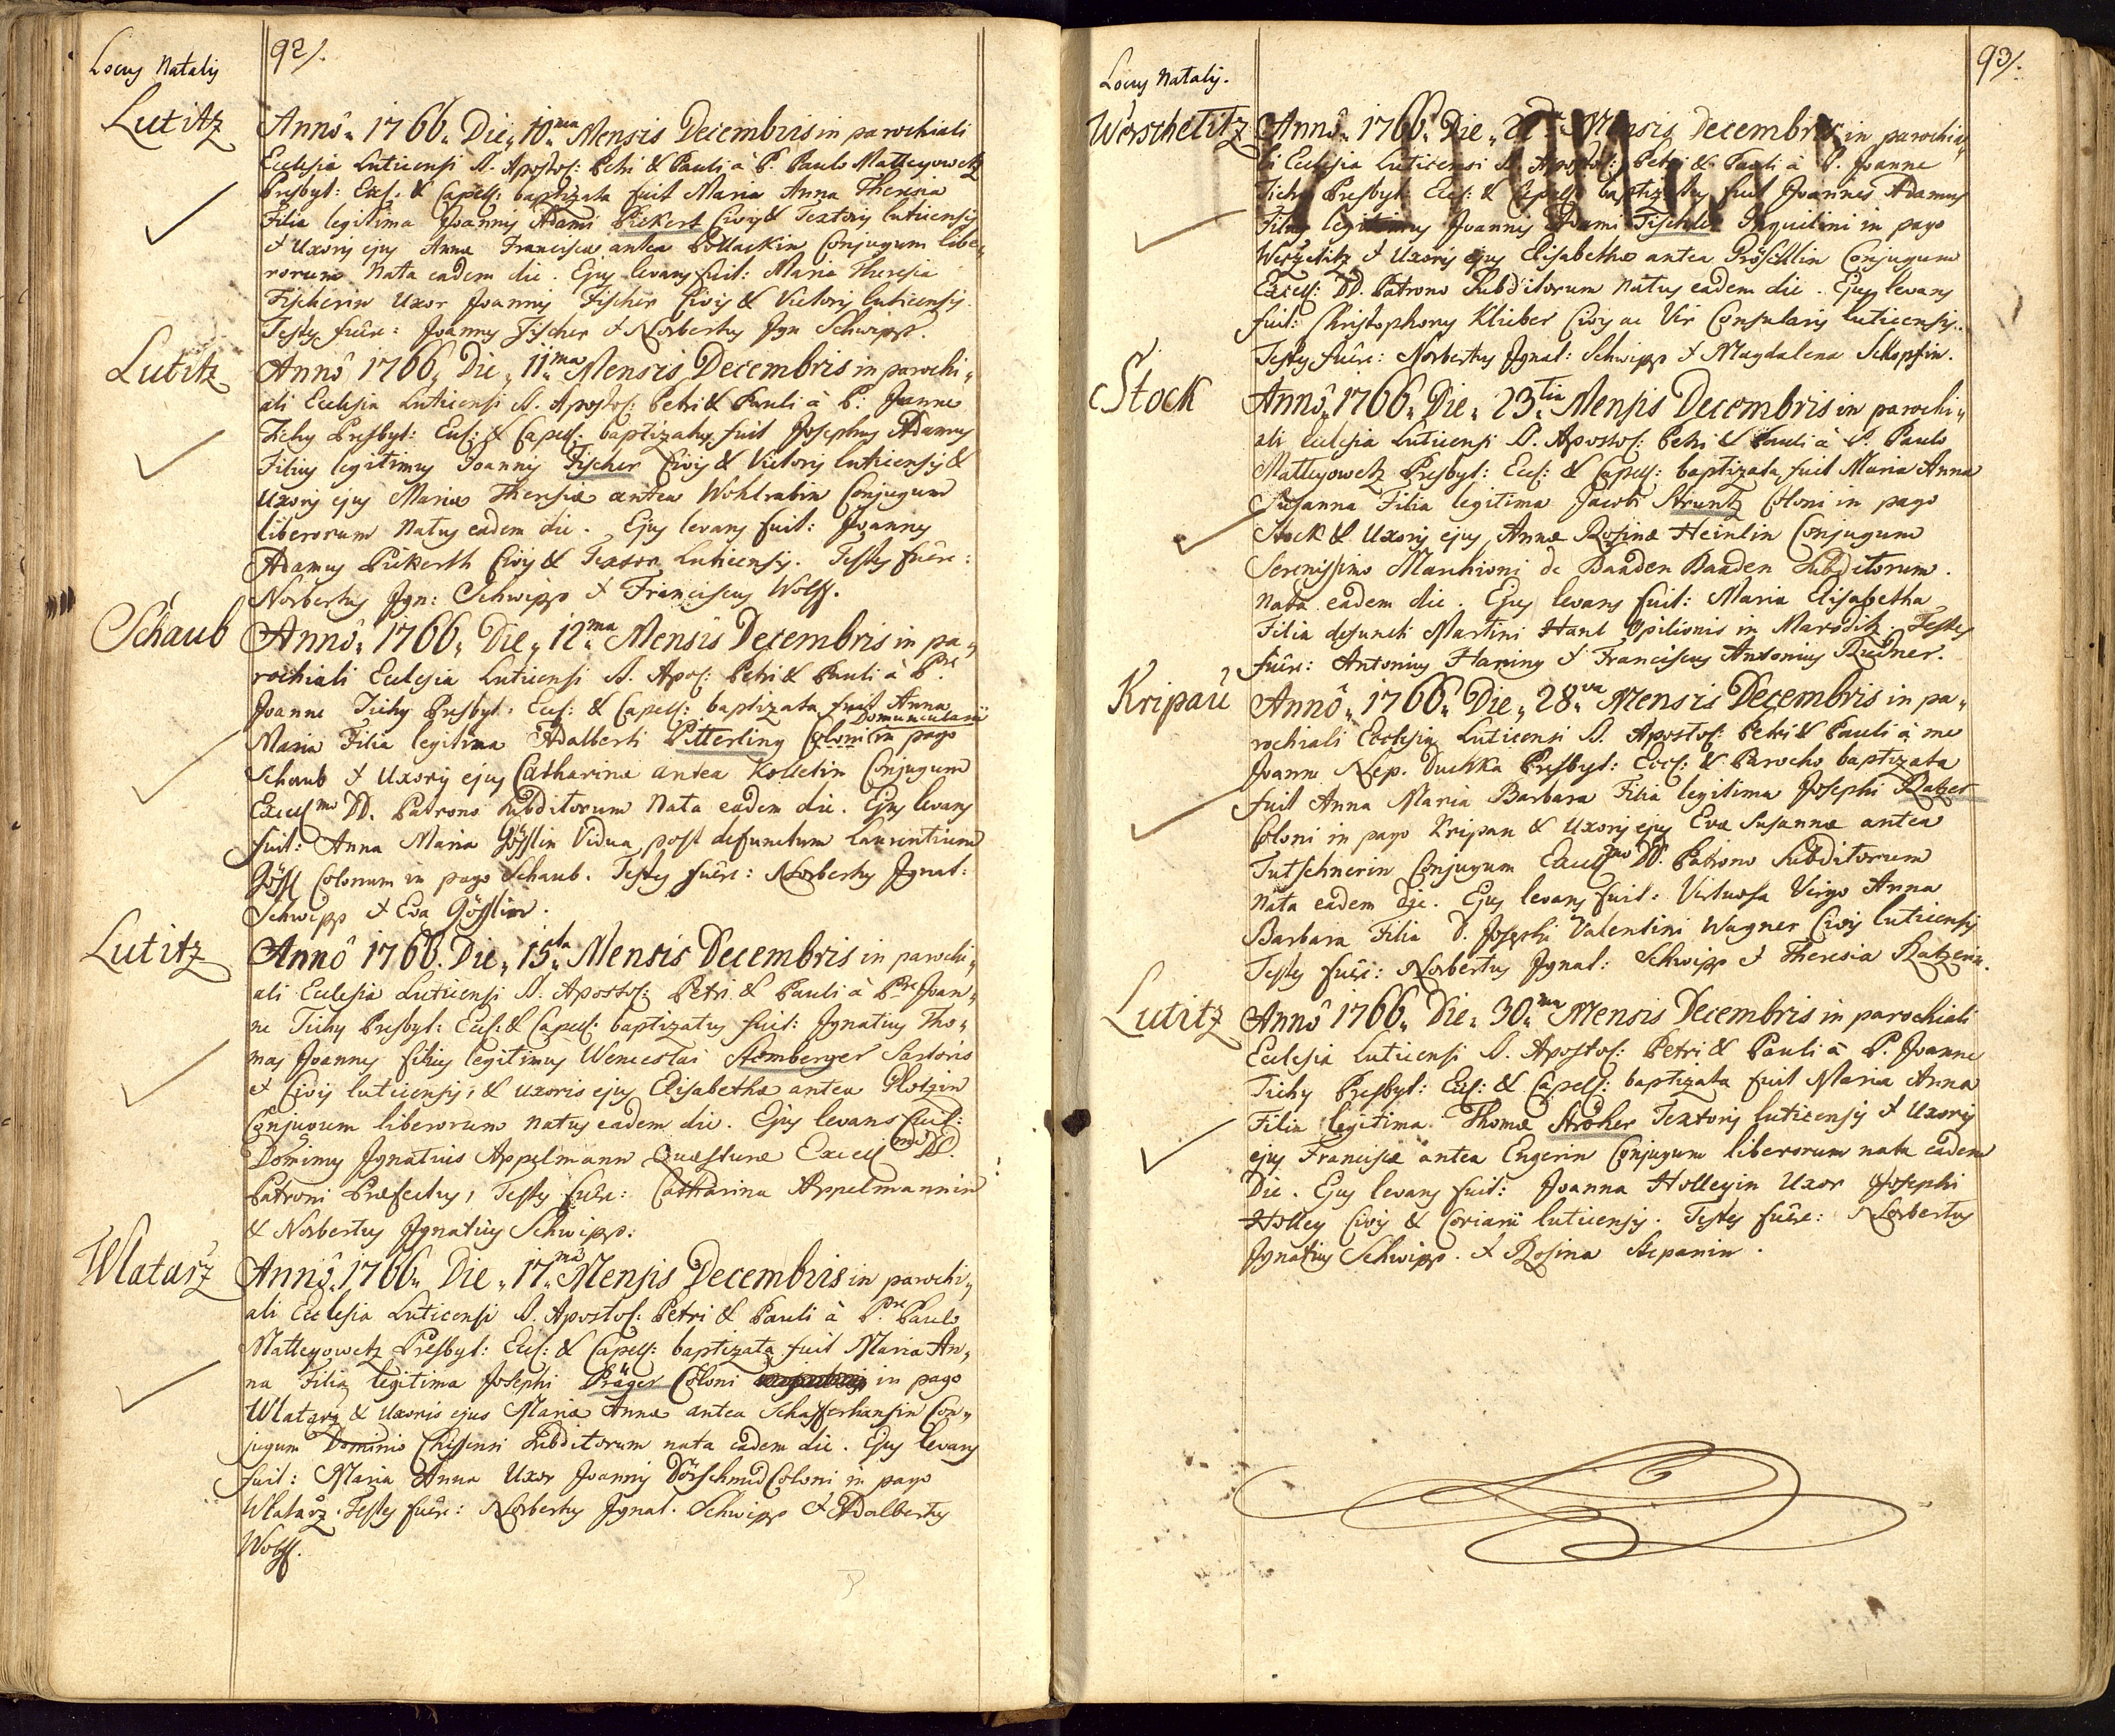 Locus Natalis
92/.
Lutitz
Annô 1766. Die 10ma Mensis Decembris in parochiali
Ecclesia Luticensi S. Apostol: Petri & Pauli à P. Paulo Matteyowetz
Presbyt: Eccl: & Capell: baptizata fuit Maria Anna Theresia
Filia legitima Joannis Adami Pickert Civis & Textoris luticensis
& Uxoris ejus Annæ Franciscæ antea Pollackin Conjugum libe„
rorum Nata eadem die. Ejus levans fuit: Maria Theresia
Fischerin Uxor Joannis Fischer Civis & Vietoris luticensis.
Testes fuêre: Joannes Fischer & Norbertus Ign Schwipp.
Lutitz
Annô 1766 Die 11ma Mensis Decembris in parochi„
ali Ecclesia Luticensi S. Apostol: Petri & Pauli à P: Joanne
Tichy Presbyt: Eccl: & Capell: baptizatus fuit Josephus Adamus
Filius legitimus Joannis Fischer Civis & Vietoris luticensis &
Uxoris ejus Mariæ Theresiæ antea Wohlrabin Conjugum
liberorum Natus eadem die. Ejus levans fuit: Joannes
Adamus Pickerth Civis & Textor Luticensis. Testes fuêre:
Norbertus Ign: Schwipp & Franciscus Wolff.
Schaub
Annô 1766 Die 12ma Mensis Decembris in pa„
rochiali Ecclesia Luticensi S. Apos: Petri & Pauli à Pre
Joanne Tichy Presbyt: Eccl: & Capell: baptizata fuit Anna
Domuncularii
Maria Filia legitima Adalberti Pitterling Coloni in pago
Schaub & Uxoris ejus Catharinæ antea Kolletin Conjugum
Excellmo DD. Patrono Subditorum Nata eadem die. Ejus levans
fuit: Anna Maria Gösslin Vidua post defunctum Laurentium
Gössl Colonum in pago Schaub. Testes fuêre: Norbertus Ignat:
Schwipp & Eva Gösslin.
Lutitz
Annô 1766. Die 15ta Mensis Decembris in parochi„
ali Ecclesia Luticensi S. Apostol: Petri & Pauli à Pre Joan„
ne Tichy Presbyt: Eccl: & Capell: baptizatus fuit: Ignatius Tho„
mas Joannes filius legitimus Wenceslai Stomberger Sartoris
& Civis luticensis, & uxoris ejus Elisabethæ antea Plotzin
Conjugum liberorum natus eadem die. Ejus levans fuit:
Dominus Ignatius Appelmann Quæsturæ Excellmi DD.
Patroni Præfectus, Testes fuêre: Catharina Appelmannin
& Norbertus Ignatius Schwipp:
Wlatarz
Annô 1766 Die 17ma Mensis Decembris in parochi„
ali Ecclesia Luticensi S. Apostol: Petri & Pauli à Pre Paulo
Matteyowetz Presbyt: Eccl: & Capell: baptizata fuit Maria An„
na Filia legitima Josephi Präger Coloni in pago
Wlatarz & Uxoris ejus Mariæ Annæ antea Schafferhansin Con„
jugum Dominio Chiessensi Subditorum nata eadem die. Ejus levans
fuit: Maria Anna Uxor Joannis Dörschmid Coloni in pago
Wlatarz. Testes fuêre: Norbertus Ignat. Schwipp & Adalbertus
Wolff.
Locus Natalis.
93/.
Werscheditz
Annô 1766 Die Mensis Decembris in parochia„
li Ecclesia Luticensi S. Apostol: Petri & Pauli à P. Joanne
Tichy Presbyt: Eccl: & Capell: baptizatus fuit Joannes Adamus
Filius legitimus Joannis Adami Tischler Inquilini in pago
Uxoris ejus Elisabethæ antea Pröschlin Conjugum
Excell: DD. Patrono Subditorum natus eadem die. Ejus levans
fuit: Christophorus Klieber Civis ac Vir Consularis luticensis.
Testes fuêre: Norbertus Ignat: Schwipp & Magdalena Schopfin.
Stock
Annô 1766 Die 23tia Mensis Decembris in parochi„
ali Ecclesia Luticensi S. Apostol: Petri & Pauli à P. Paulo
Matteyowetz Presbyt: Eccl: & Capell: baptizata fuit Maria Anna
Susanna Filia legitima Jacobi Struntz Coloni in pago
Stock & Uxoris ejus Annæ Rosinæ Heinlin Conjugum
Serenissimo Marchioni de Baaden Baaden Subditorum.
Nata eadem die. Ejus levans fuit: Maria Elisabetha
Filia defuncti Martini Hanl Opilionis in Maroditz. Testes
fuêre: Antonius Haning & Franciscus Antonius Rudner.
Kripau
Annô 1766 Die 28va Mensis Decembris in pa„
rochiali Ecclesia Luticensi S. Apostol: Petri & Pauli à me
Joann Nep. Duchka Presbyt: Eccl: & Parocho baptizata
fuit Anna Maria Barbara Filia legitima Josephi Ratzer
Coloni in pago Kripau & Uxoris ejus Evæ Susannæ antea
Tutschnerin Conjugum Excellmo DD. Patrono Subditorum
Nata eadem die. Ejus levans fuit: Virtuosa Virgo Anna
Barbara Filia D. Josephi Valentini Wagner Civis luticensis
Testes fuêre: Norbertus Ignat: Schwipp & Theresia Ratzerin.
Lutitz
Annô 1766 Die 30ma Mensis Decembris in parochiali
Ecclesia Luticensi S. Apostol: Petri & Pauli à P. Joanne
Tichy Presbyt: Eccl: & Capell: baptizata fuit Maria Anna
Filia legitima Thomæ Ströher Textoris luticensis & Uxoris
ejus Franciscæ antea Engerin Conjugum liberorum nata eadem
Die. Ejus levans fuit: Joanna Holleyin Uxor Josephi
Holley Civis & Coriarii luticensis. Testes fuêre: Norbertus
Ignatius Schwipp. & Rosina Stepanin.